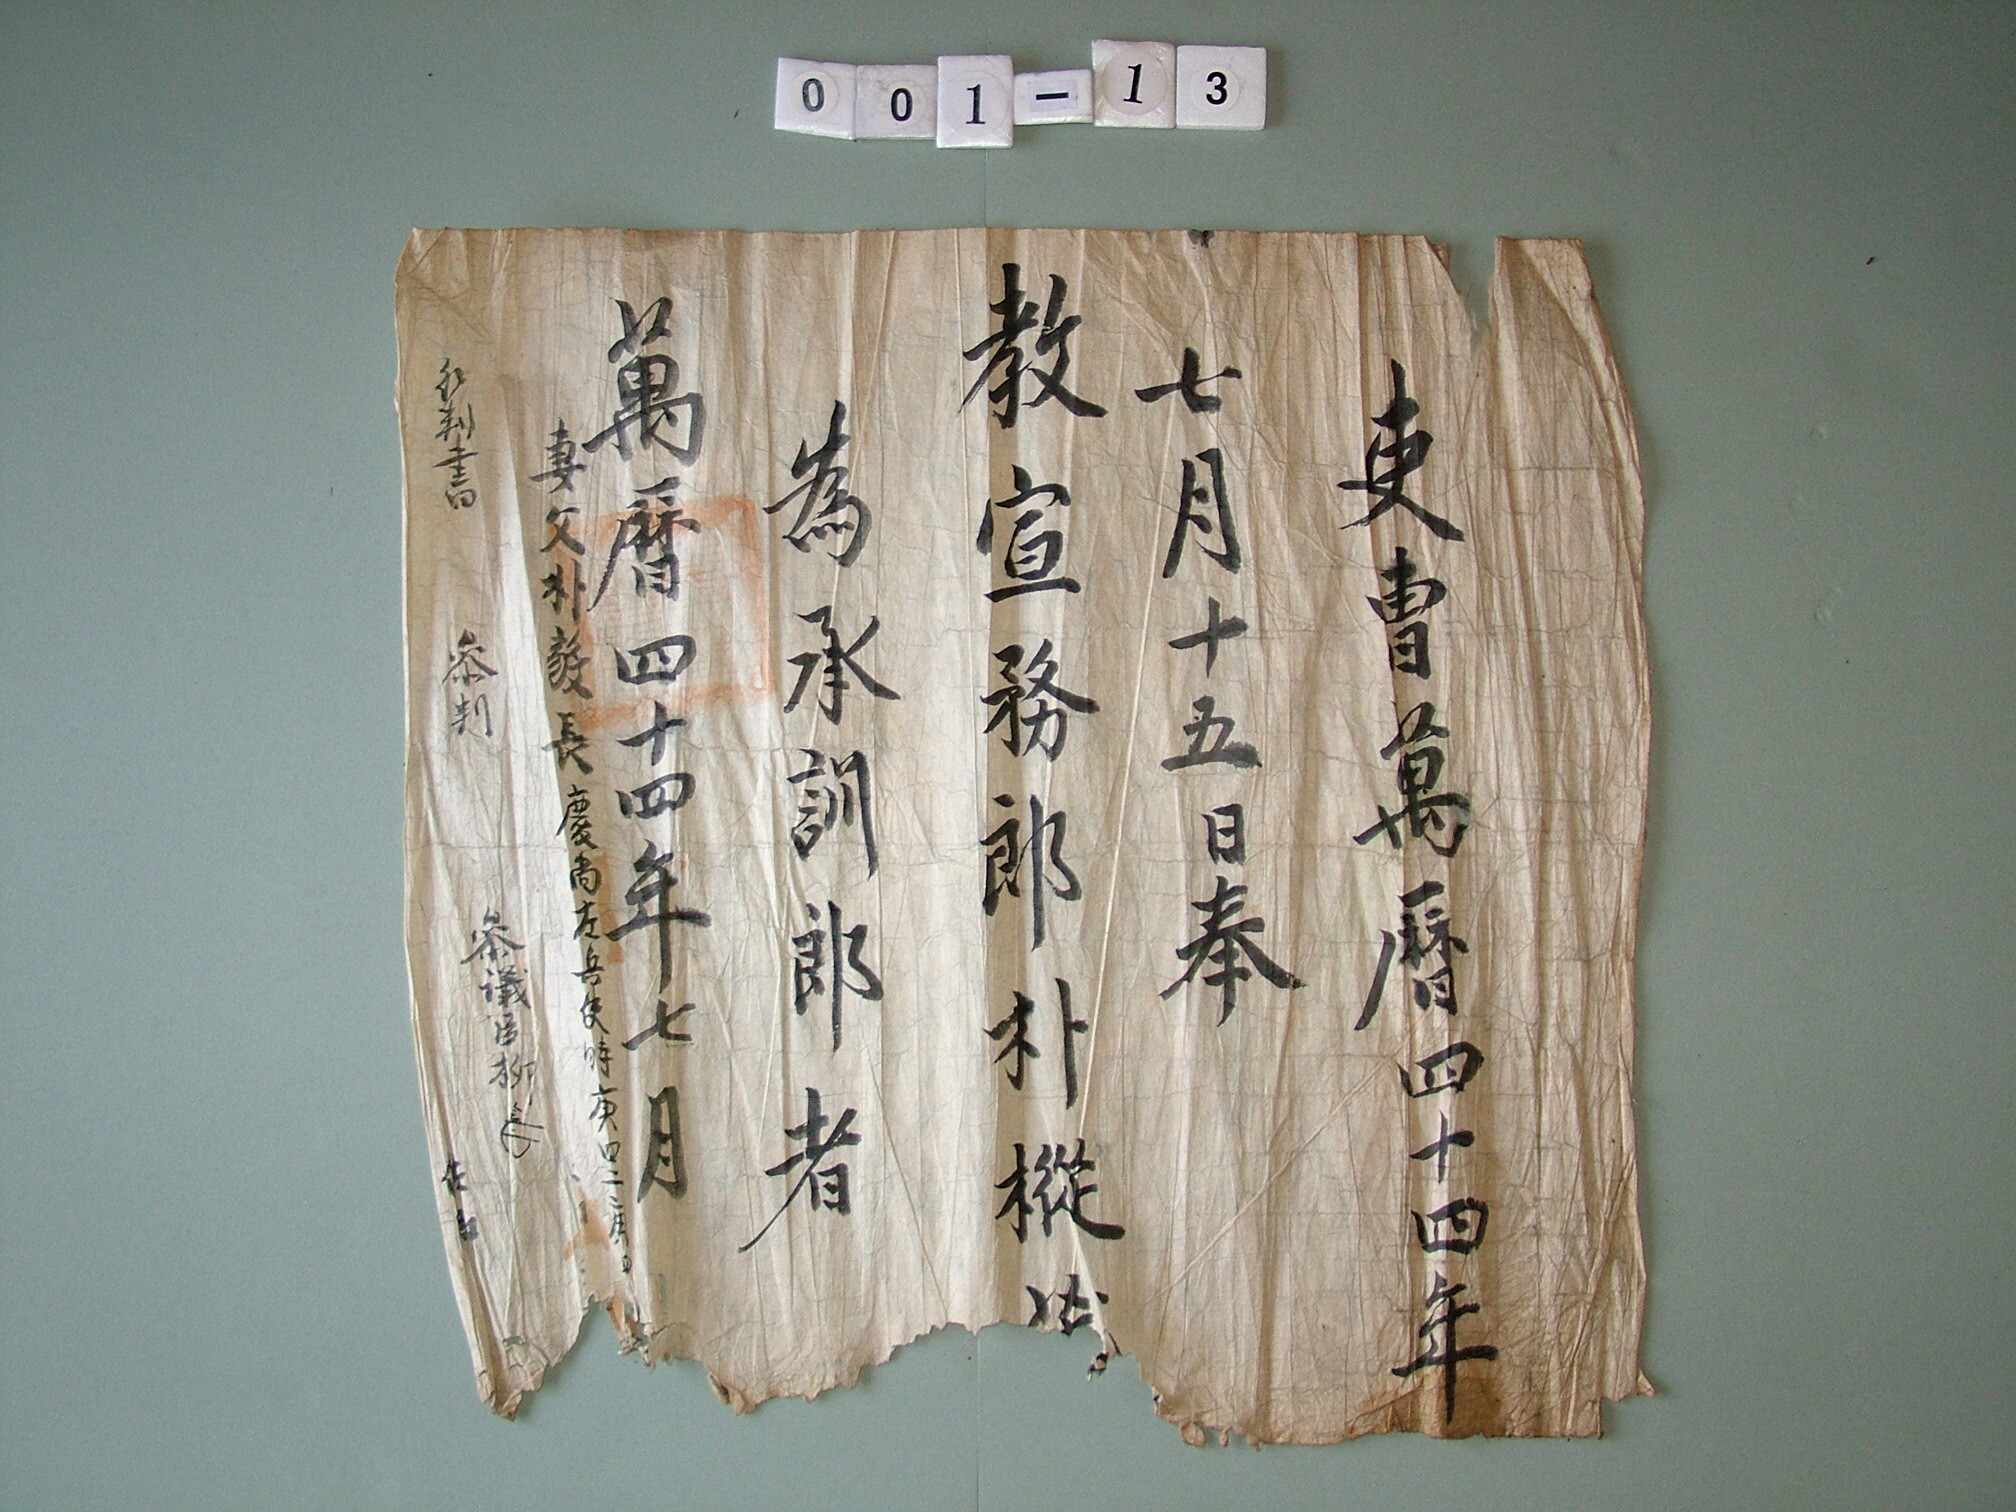 001-13
吏曹萬曆四十四年
七月十五日奉
教宣務郎朴樅茂
為承訓郎者
萬曆四十四年七月
妻父朴毅長慶尚左兵使時庚四二三月
行判書 參判 參議臣柳